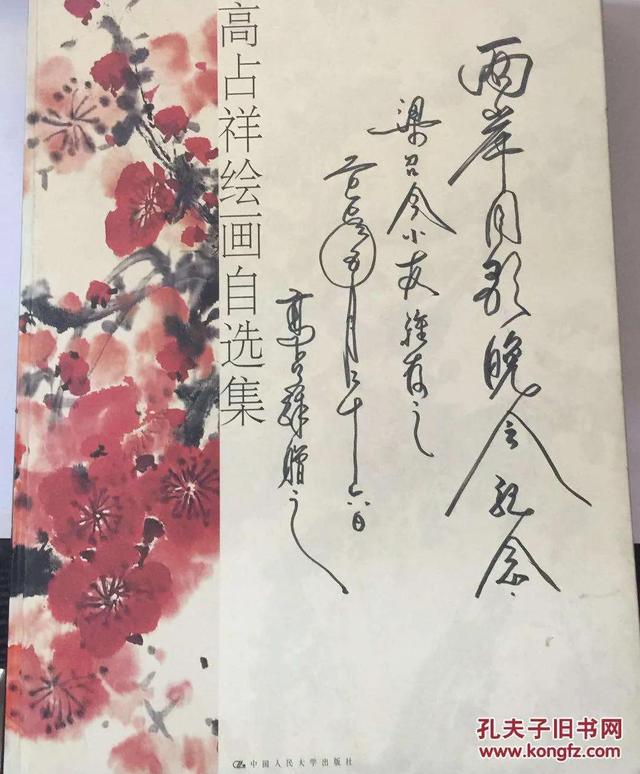 高占祥绘画自选集
两岸同歌晚会纪念
梁召今小友雅存之
五月二十六日
高占祥赠之
中国人民大学出版社
孔夫子旧书网
www.kongfz.com